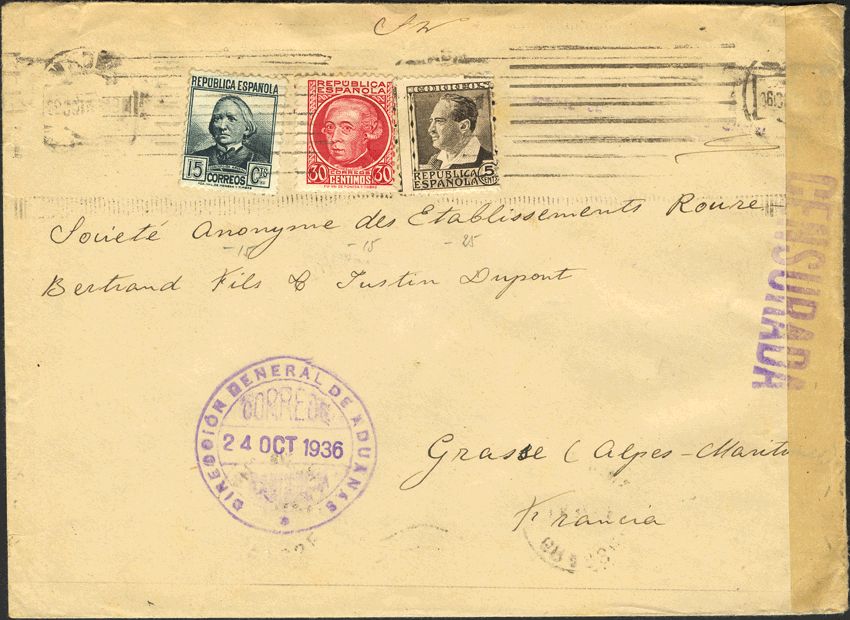 REPÚBLICA ESPAÑOLA
15 CORREOS Cts
REPÚBLICA
ESPAÑOLA
30 CORREOS 30
CENTIMOS
CORREOS
REPÚBLICA
ESPAÑOLA
5 CENTS
Societé Anonyme des Etablissements Roure-
-15 -15 -25
Bertrand Fils & Justin Dupont
CENSURADA
DIRECCIÓN GENERAL DE ADUANAS
CORREOS
24 OCT 1936
Grasse (Alpes-Marit
Francia